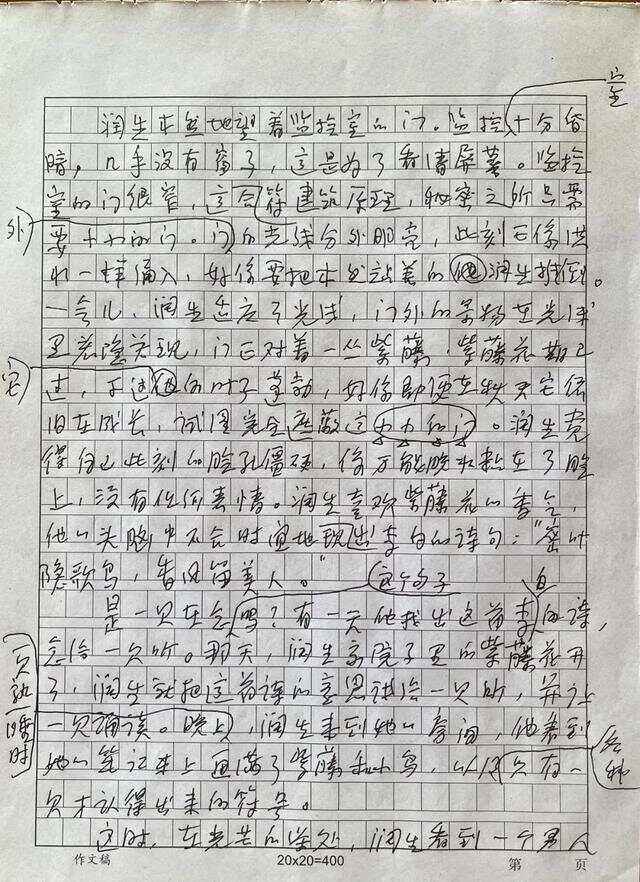 室
润生木然地望着监控室的门。监控十分昏
暗，几乎没有窗子，这是为了看清屏幕。监控
室的门很窄，这合符建筑原理，秘密之所只需
外
要小小的门。门的光线分外明亮，此刻它像洪
水一样涌入，好像要把木然站着的他润生推倒。
一会儿，润生适应了光线，门外的景物在光线
里若隐若现，门正对着一丛紫藤。紫藤花期已
它
过，不过他的叶子蓬勃，好像即便在秋天它依
旧在成长，试图完全遮蔽这小小的门。润生觉
得自己此刻的脸孔僵硬，像万能胶水粘在了脸
上，没有任何表情。润生喜欢紫藤花的香气，
他的头脑中不合时宜地现出李白的诗句：“密叶
隐歌鸟，香风留美人。”
这个句子 白
是一贝在念吗？有一天他找出这首李的诗，
念给一贝听。那天，润生家院子里的紫藤花开
了，润生就把这首诗的意思讲给一贝听，并让
一贝诵读。晚上，润生来到她的房间，他看到
一贝熟睡时
她的笔记本上画满了紫藤和小鸟，以及只有一
各种
贝才认得出来的符号。
这时，在光芒的深处，润生看到一个男人
作文稿 20x20=400 第 页